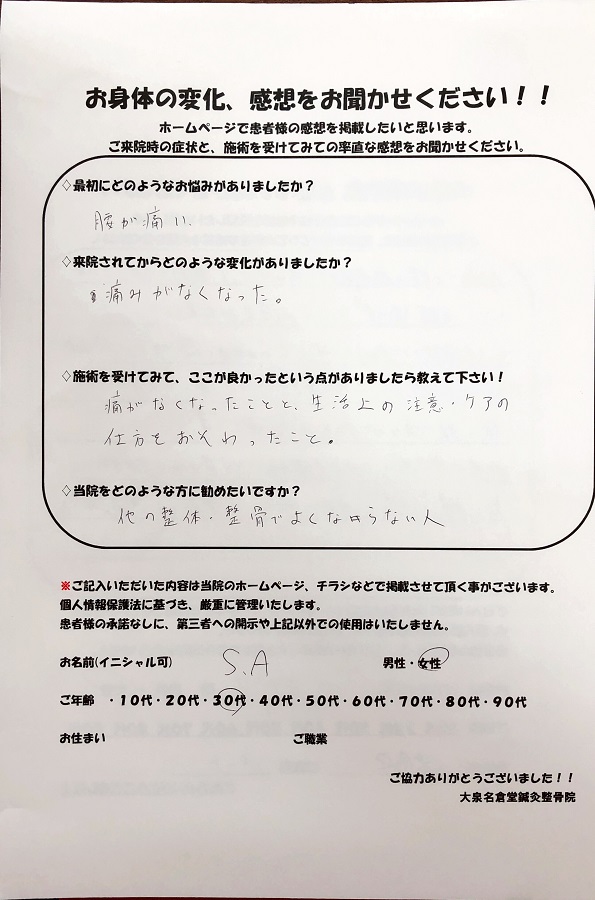 お身体の変化、感想をお聞かせください！！
ホームページで患者様の感想を掲載したいと思います。
ご来院時の症状と、施術を受けてみての率直な感想をお聞かせください。
◇最初にどのようなお悩みがありましたか？
腰が痛い
◇来院されてからどのような変化がありましたか？
痛みがなくなった。
◇施術を受けてみて、ここが良かったという点がありましたら教えて下さい！
痛がなくなったことと、生活上の注意・ケアの
仕方をおそわったこと。
◇当院をどのような方に勧めたいですか？
他の整体・整骨でよくならない人
※ご記入いただいた内容は当院のホームページ、チラシなどで掲載させて頂く事がございます。
個人情報保護法に基づき、厳重に管理いたします。
患者様の承諾なしに、第三者への開示や上記以外での使用はいたしません。
お名前(イニシャル可) S.A 男性・女性
ご年齢 ・10代・20代・30代・40代・50代・60代・70代・80代・90代
お住まい ご職業
ご協力ありがとうございました！！
大泉名倉堂鍼灸整骨院